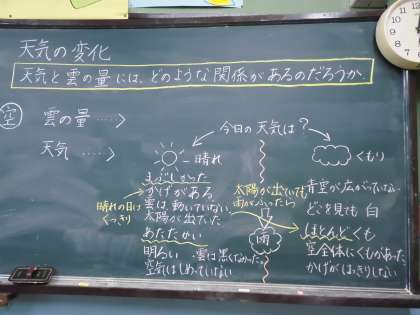 天気の変化
天気と雲の量には、どのような関係があるのだろうか。
空
雲の量 ‥‥>
天気 ‥‥>
今日の天気は?
晴れ
まぶしかった
かげがある
雲は、動いていない
太陽が出ていた
あたたかい
明るい ・雲は黒くなかった
空気はしめっていない
晴れの日は
くっきり
太陽が出ていても
雨がふったら
雨
くもり
青雲が広がっていない
どこを見ても 白
ほとんどくも
空全体にくもがあった
かげがはっきりしない
12
11
10
9
8
7